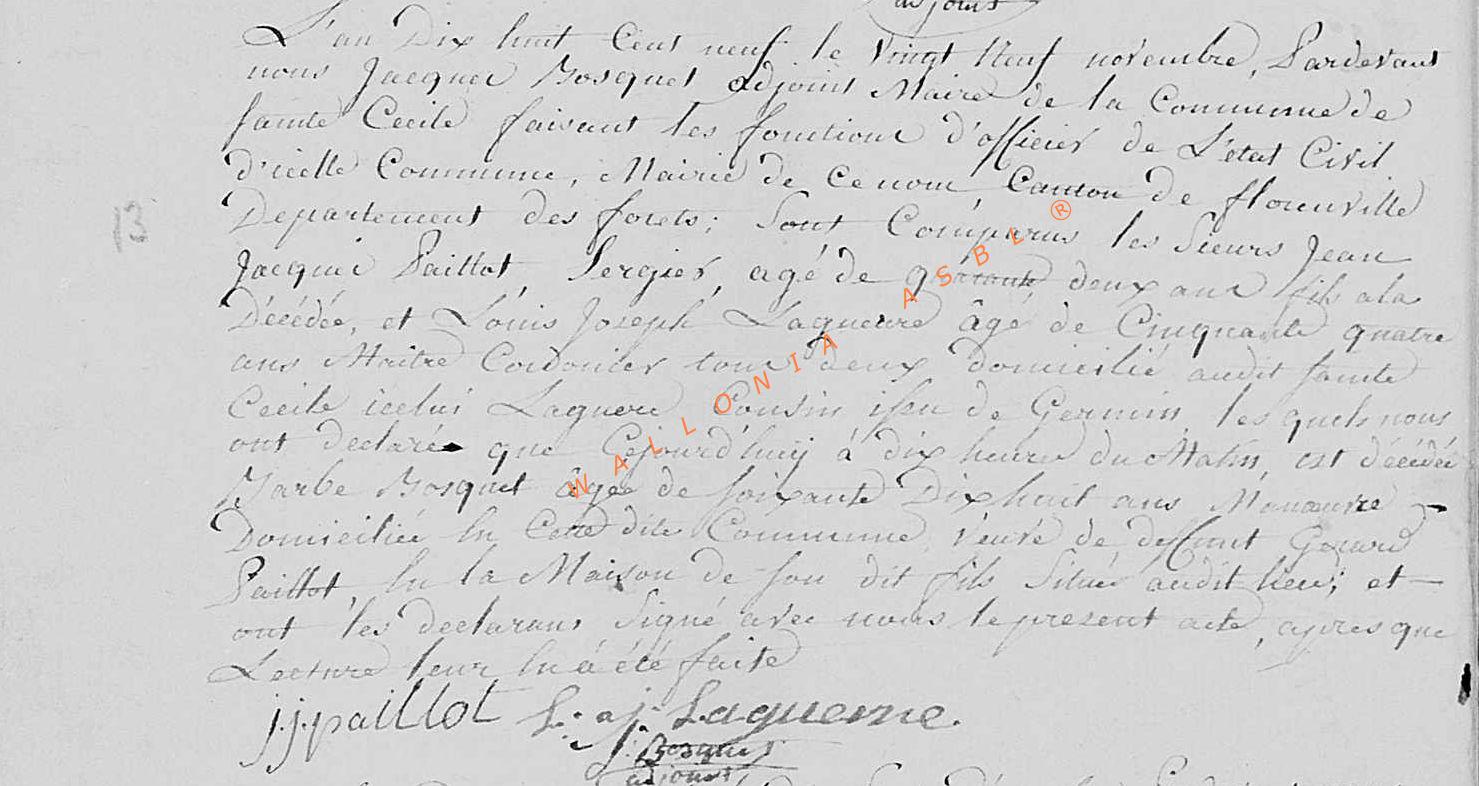 adjoint
L'an Dix huit Cent neuf le Vingt Neuf novembre, Pardevant
nous Jacques Bosquet adjoint Maire de la Commune de
sainte Cecile faisant les fonctions d'officier de L'état Civil
d'icelle Commune, Mairie de ce nom Canton de florenville
Departement des forets; sont Comparus les Sieurs Jean
Jacques Paillot, Sergier, agé de quarante deux ans fils a la
Décédée, et Louis Joseph Laguerre âgé de Cinquante quatre
ans Maitre Cordonier tous deux domicilié audit sainte
Cecile icelui Laguerre Cousin issu de Germain, les quels nous
ont declaré que Cejourd'huy à dix heures du Matin, est décédée
Barbe Bosquet âgée de soixante Dix huit ans Manœuvre
Domiciliée en Cette dite Commune, veuve de deffunt Gerard
Paillot, en la Maison de son dit fils Situé audit lieu; et
ont les declarans Signé avec nous le present acte, apres que
Lecture leur en a été faite
13
j.j. paillot L. j. Laguerre.
j. Bosquet
adjoint
WALLONIA ASBL ®